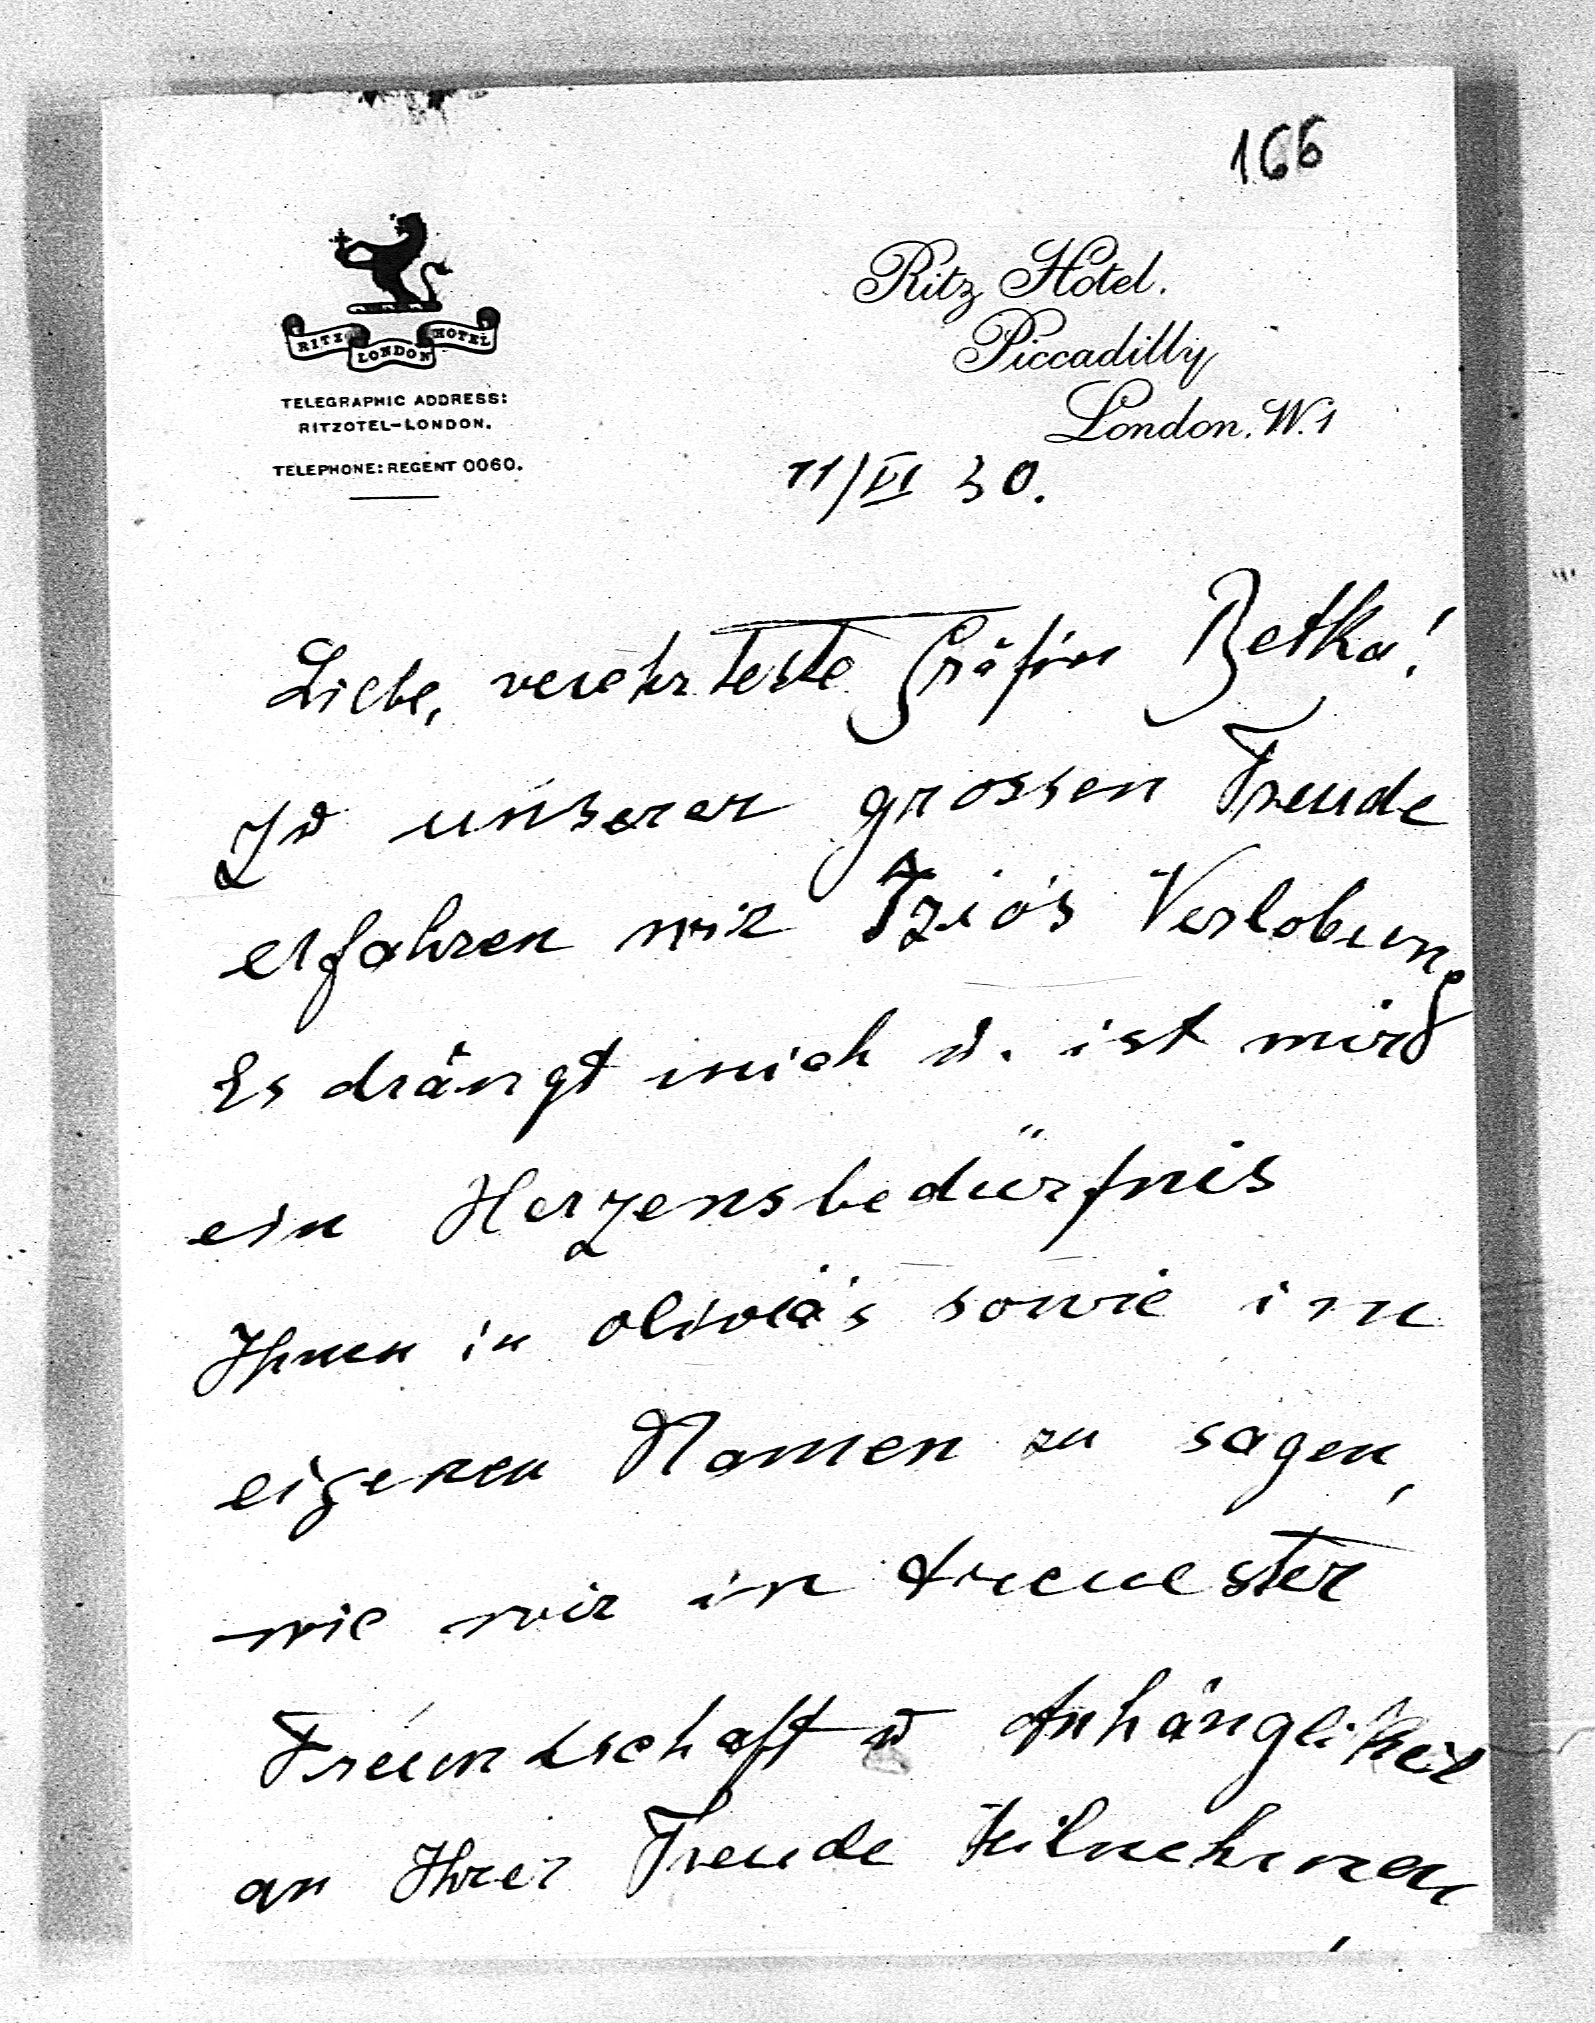 166
RITZ HOTEL
LONDON
TELEGRAPHIC ADDRESS:
RITZOTEL-LONDON.
TELEPHONE: REGENT 0060.
Ritz Hotel.
Piccadilly
London. W.1
11/VI 30.
Liebe, verehrteste Gräfin Betka!
Zu unserer grossen Freude
erfahren wir Verlobung
Es drängt mich u. ist mir
ein Herzensbedürfnis
Ihnen in Olivia's sowie im
eigenen Namen zu sagen,
wie wir in treuester
Freundschaft u Anhänglikeit
an Ihrer Freude teilnehmen,